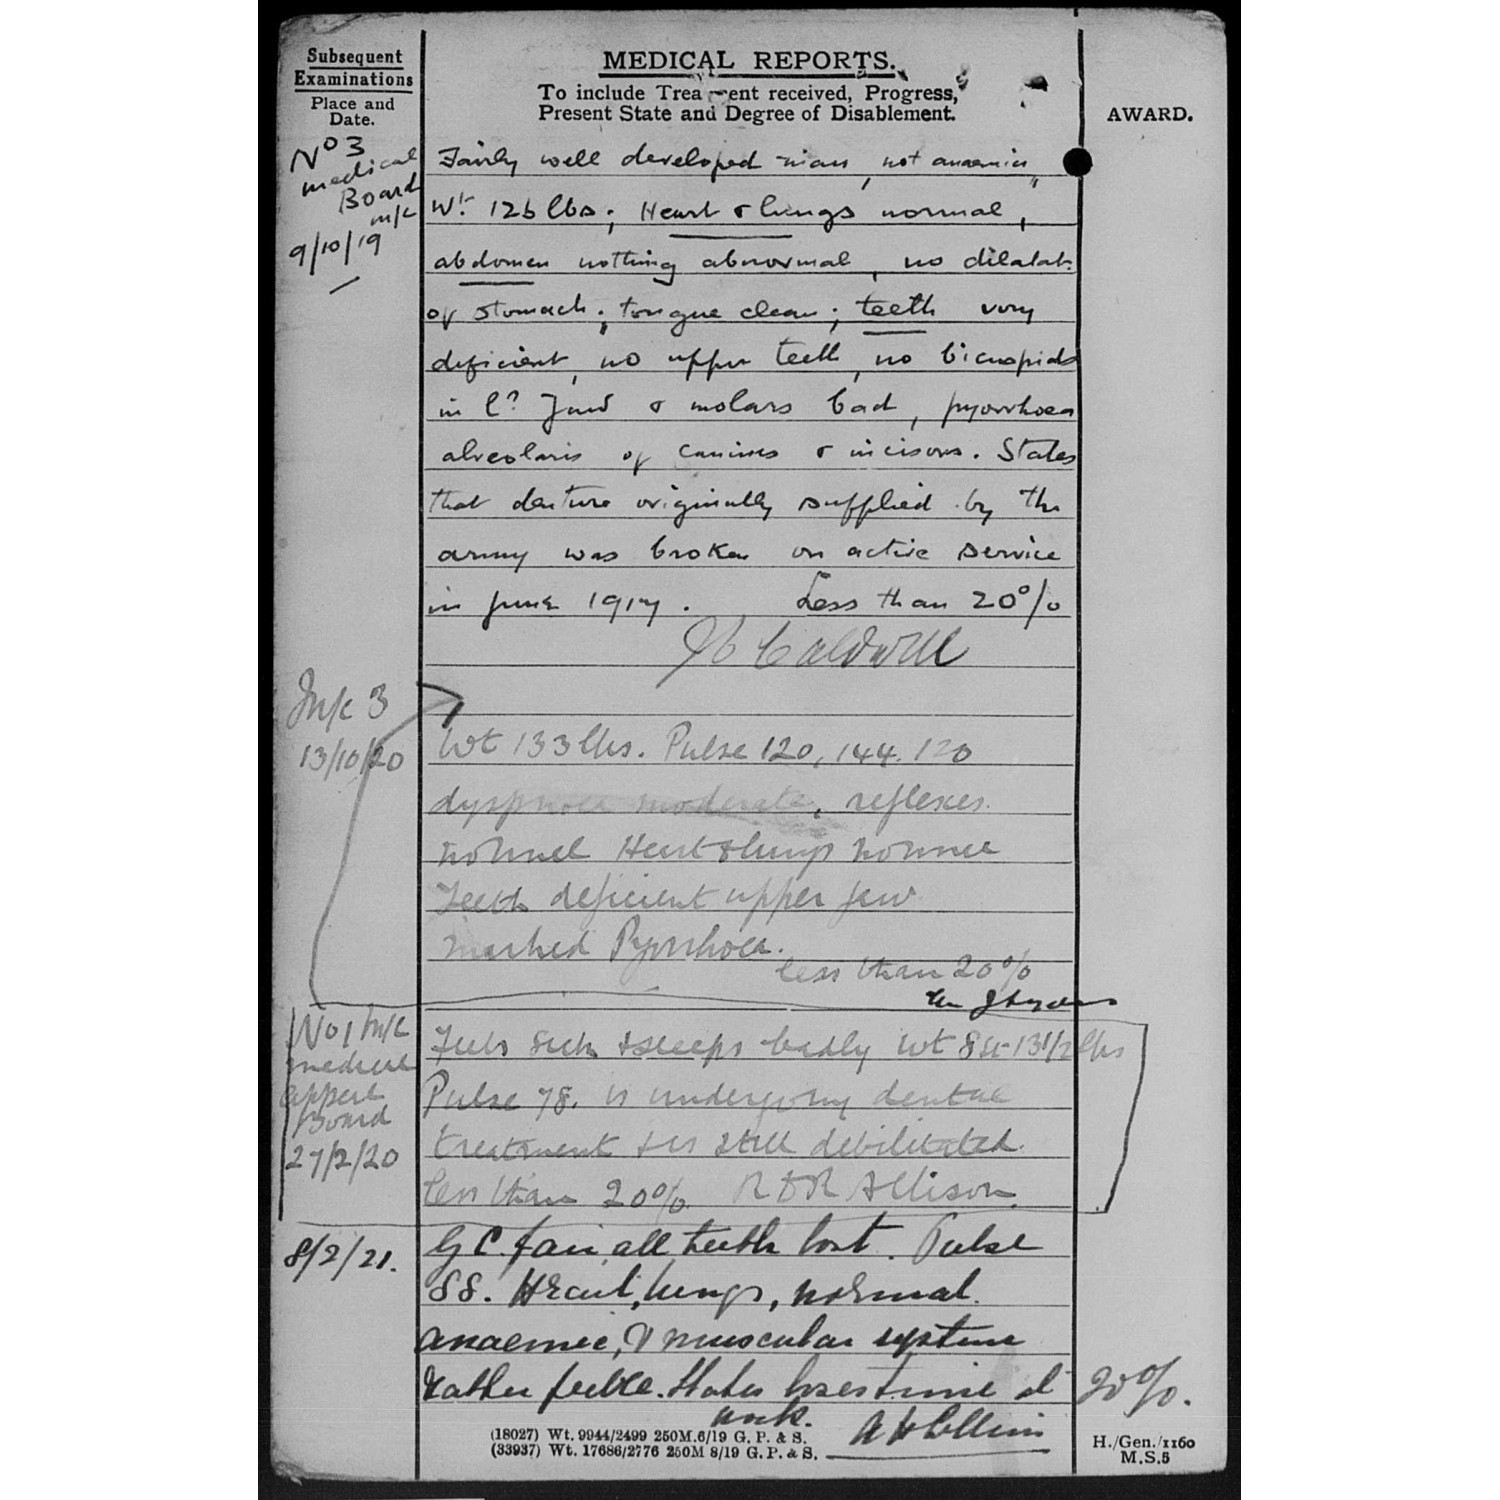 Subsequent
Examinations
Place and
Date.
MEDICAL REPORTS.
To include Trea ent received, Progress,
Present State and Degree of Disablement.
AWARD.
No 3
medical
Board
m/c
9/10/19
Fairly well developed man, not anaemic,
Wt. 126 lbs; Heart & lungs normal,
abdomen nothing abnormal, no dilatat.
of stomach; tongue clean; teeth very
deficient, no upper teeth, no bicuspids
in l? Jaw & molars bad, pyorrhoea
alveolaris of canines & incisors. States
that denture originally supplied by the
army was broken on active service
in June 1917. Less than 20%
Caldwell
M/c 3
13/10/20
Wt 133 lbs. Pulse 120, 144. 120
dyspnoea moderate, reflexes
normal Heart & lungs normal
Teeth deficient upper jaw
marked Pyorrhoea.
less than 20%
No 1 M/c
medical
appeal
Board
27/2/20
Feels sick & sleeps badly Wt 8st-13 1/2 lbs
Pulse 78. is undergoing dental
treatment & is still debilitated.
less than 20% R D R Allison
8/2/21.
G C. fair, all teeth lost. Pulse
88. Heart, lungs, normal.
anaemic, & muscular system
rather feeble. States loses time at
work.
A H Collins
20%.
(18027) Wt. 9944/2499 250M.6/19 G. P. & S.
(33937) Wt. 17686/2776 250M 8/19 G. P. & S.
H./Gen./1160
M.S.5